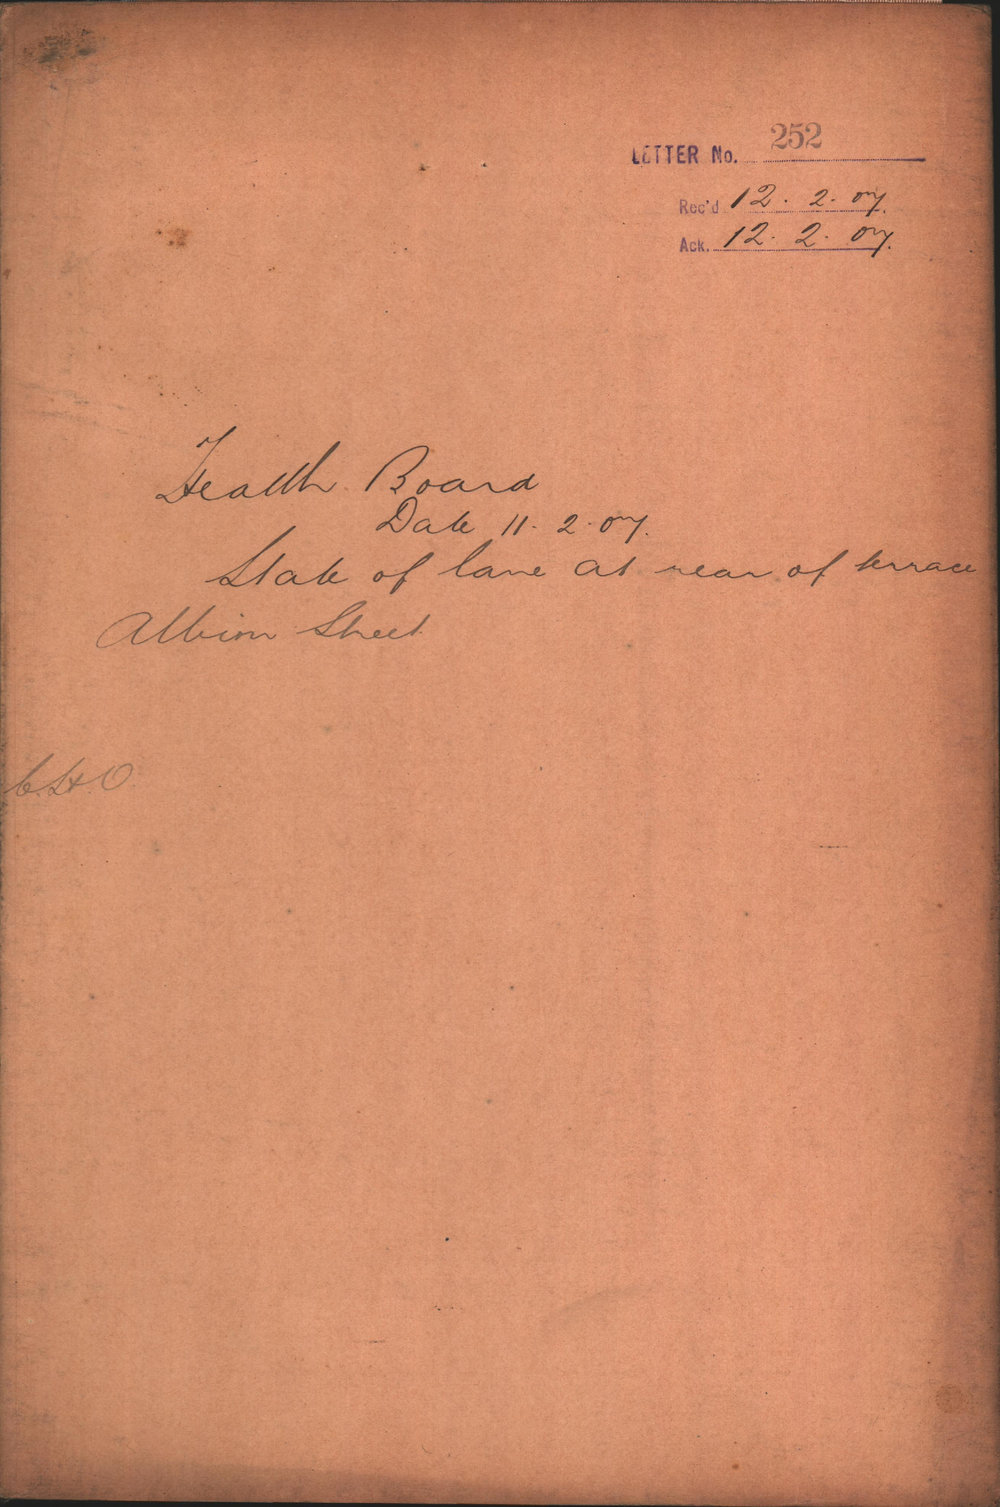 LETTER No. 252
Rec'd 12. 2. 07.
Ack. 12. 2. 07.
Health Board
Date 11. 2. 07.
State of lane at rear of terrace
Albion Street
C.H.O.